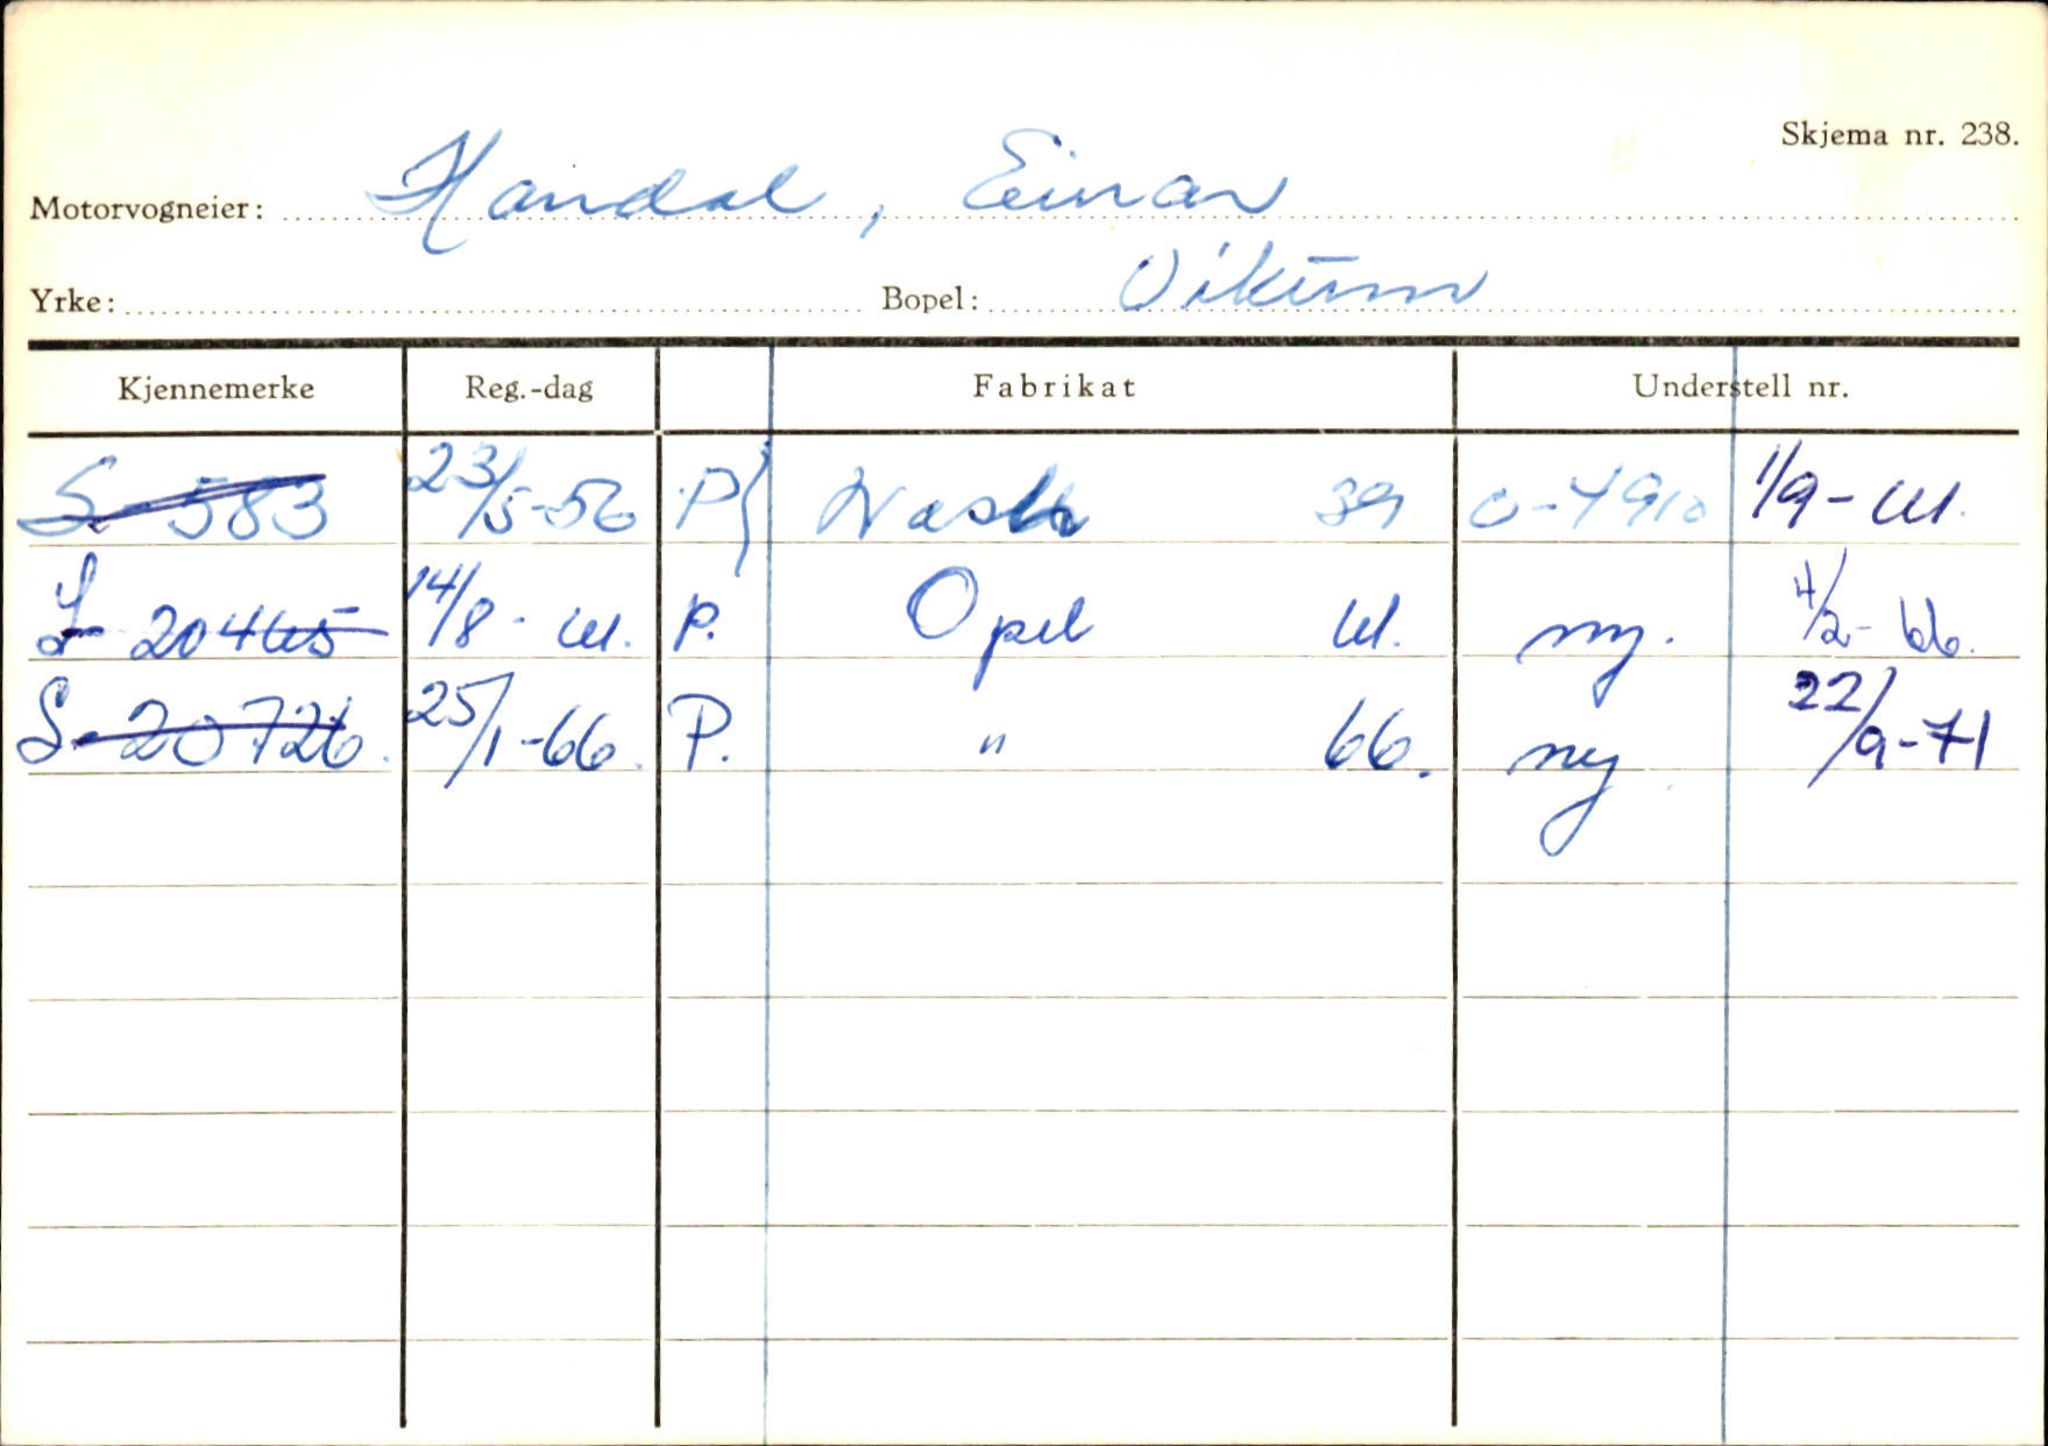 Skjema nr. 238.
Motorvogneier: Handal, Einar
Yrke: Bopel: Vikum
Kjennemerke Reg.-dag Fabrikat Understell nr.
S-583 23/5-56 P Nash 39 0-4910 1/9-61.
S-20465 14/8-61. P. Opel 61. ny. 4/2-66.
S-20726. 25/1-66. P. " 66. ny 22/9-71